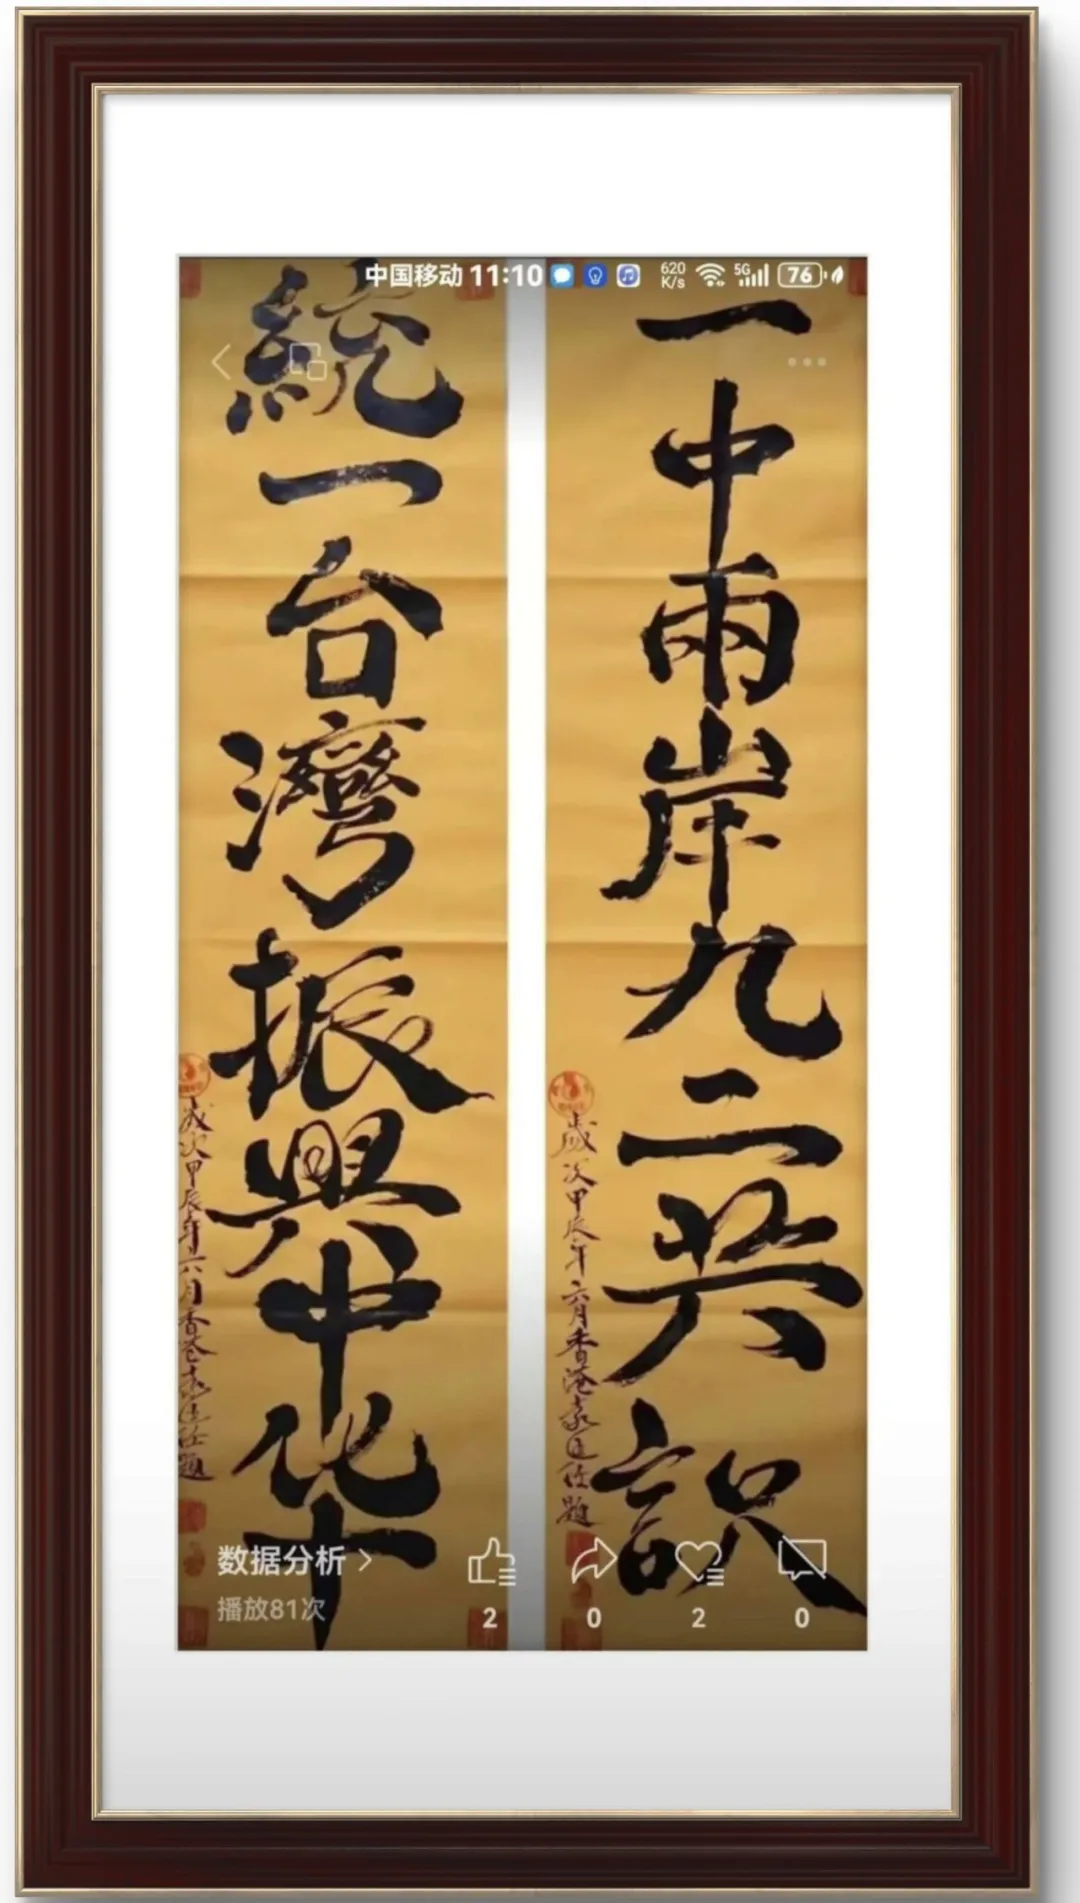 中国移动 11:10 620 K/s 5G 76
一中兩岸九二共識
歲次甲辰年六月香港袁
題
統一台灣振興中华
歲次甲辰年六月香港袁
題
数据分析
播放81次
2
0
2
0